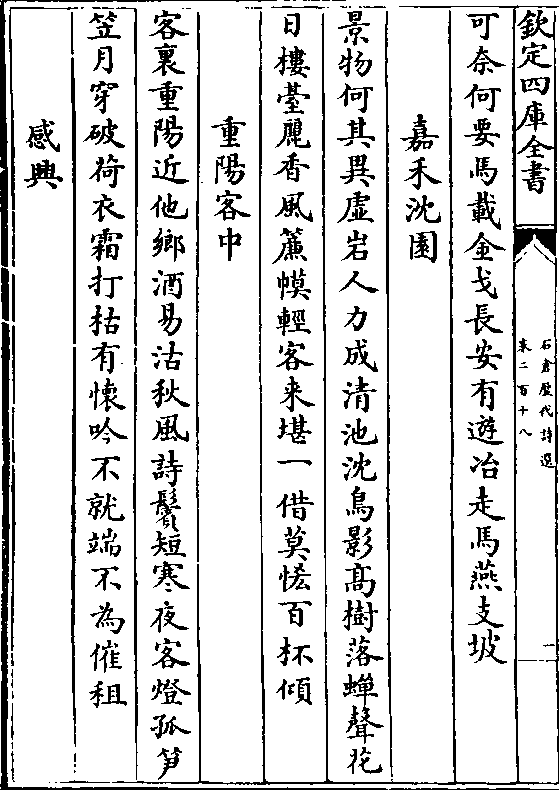 欽定四庫全書
石倉歷代詩選
卷二百十八
一
可奈何要馬載金戈長安有遊冶走馬燕支坡
嘉禾沈園
景物何其異虚岩人力成清池沈鳥影髙樹落蟬聲花
日樓臺麗香風簾幙輕客来堪一借莫恡百杯傾
重陽客中
客裏重陽近他鄉酒易沽秋風詩鬢短寒夜客燈孤笋
笠月穿破荷衣霜打枯有懷吟不就端不為催租
感興